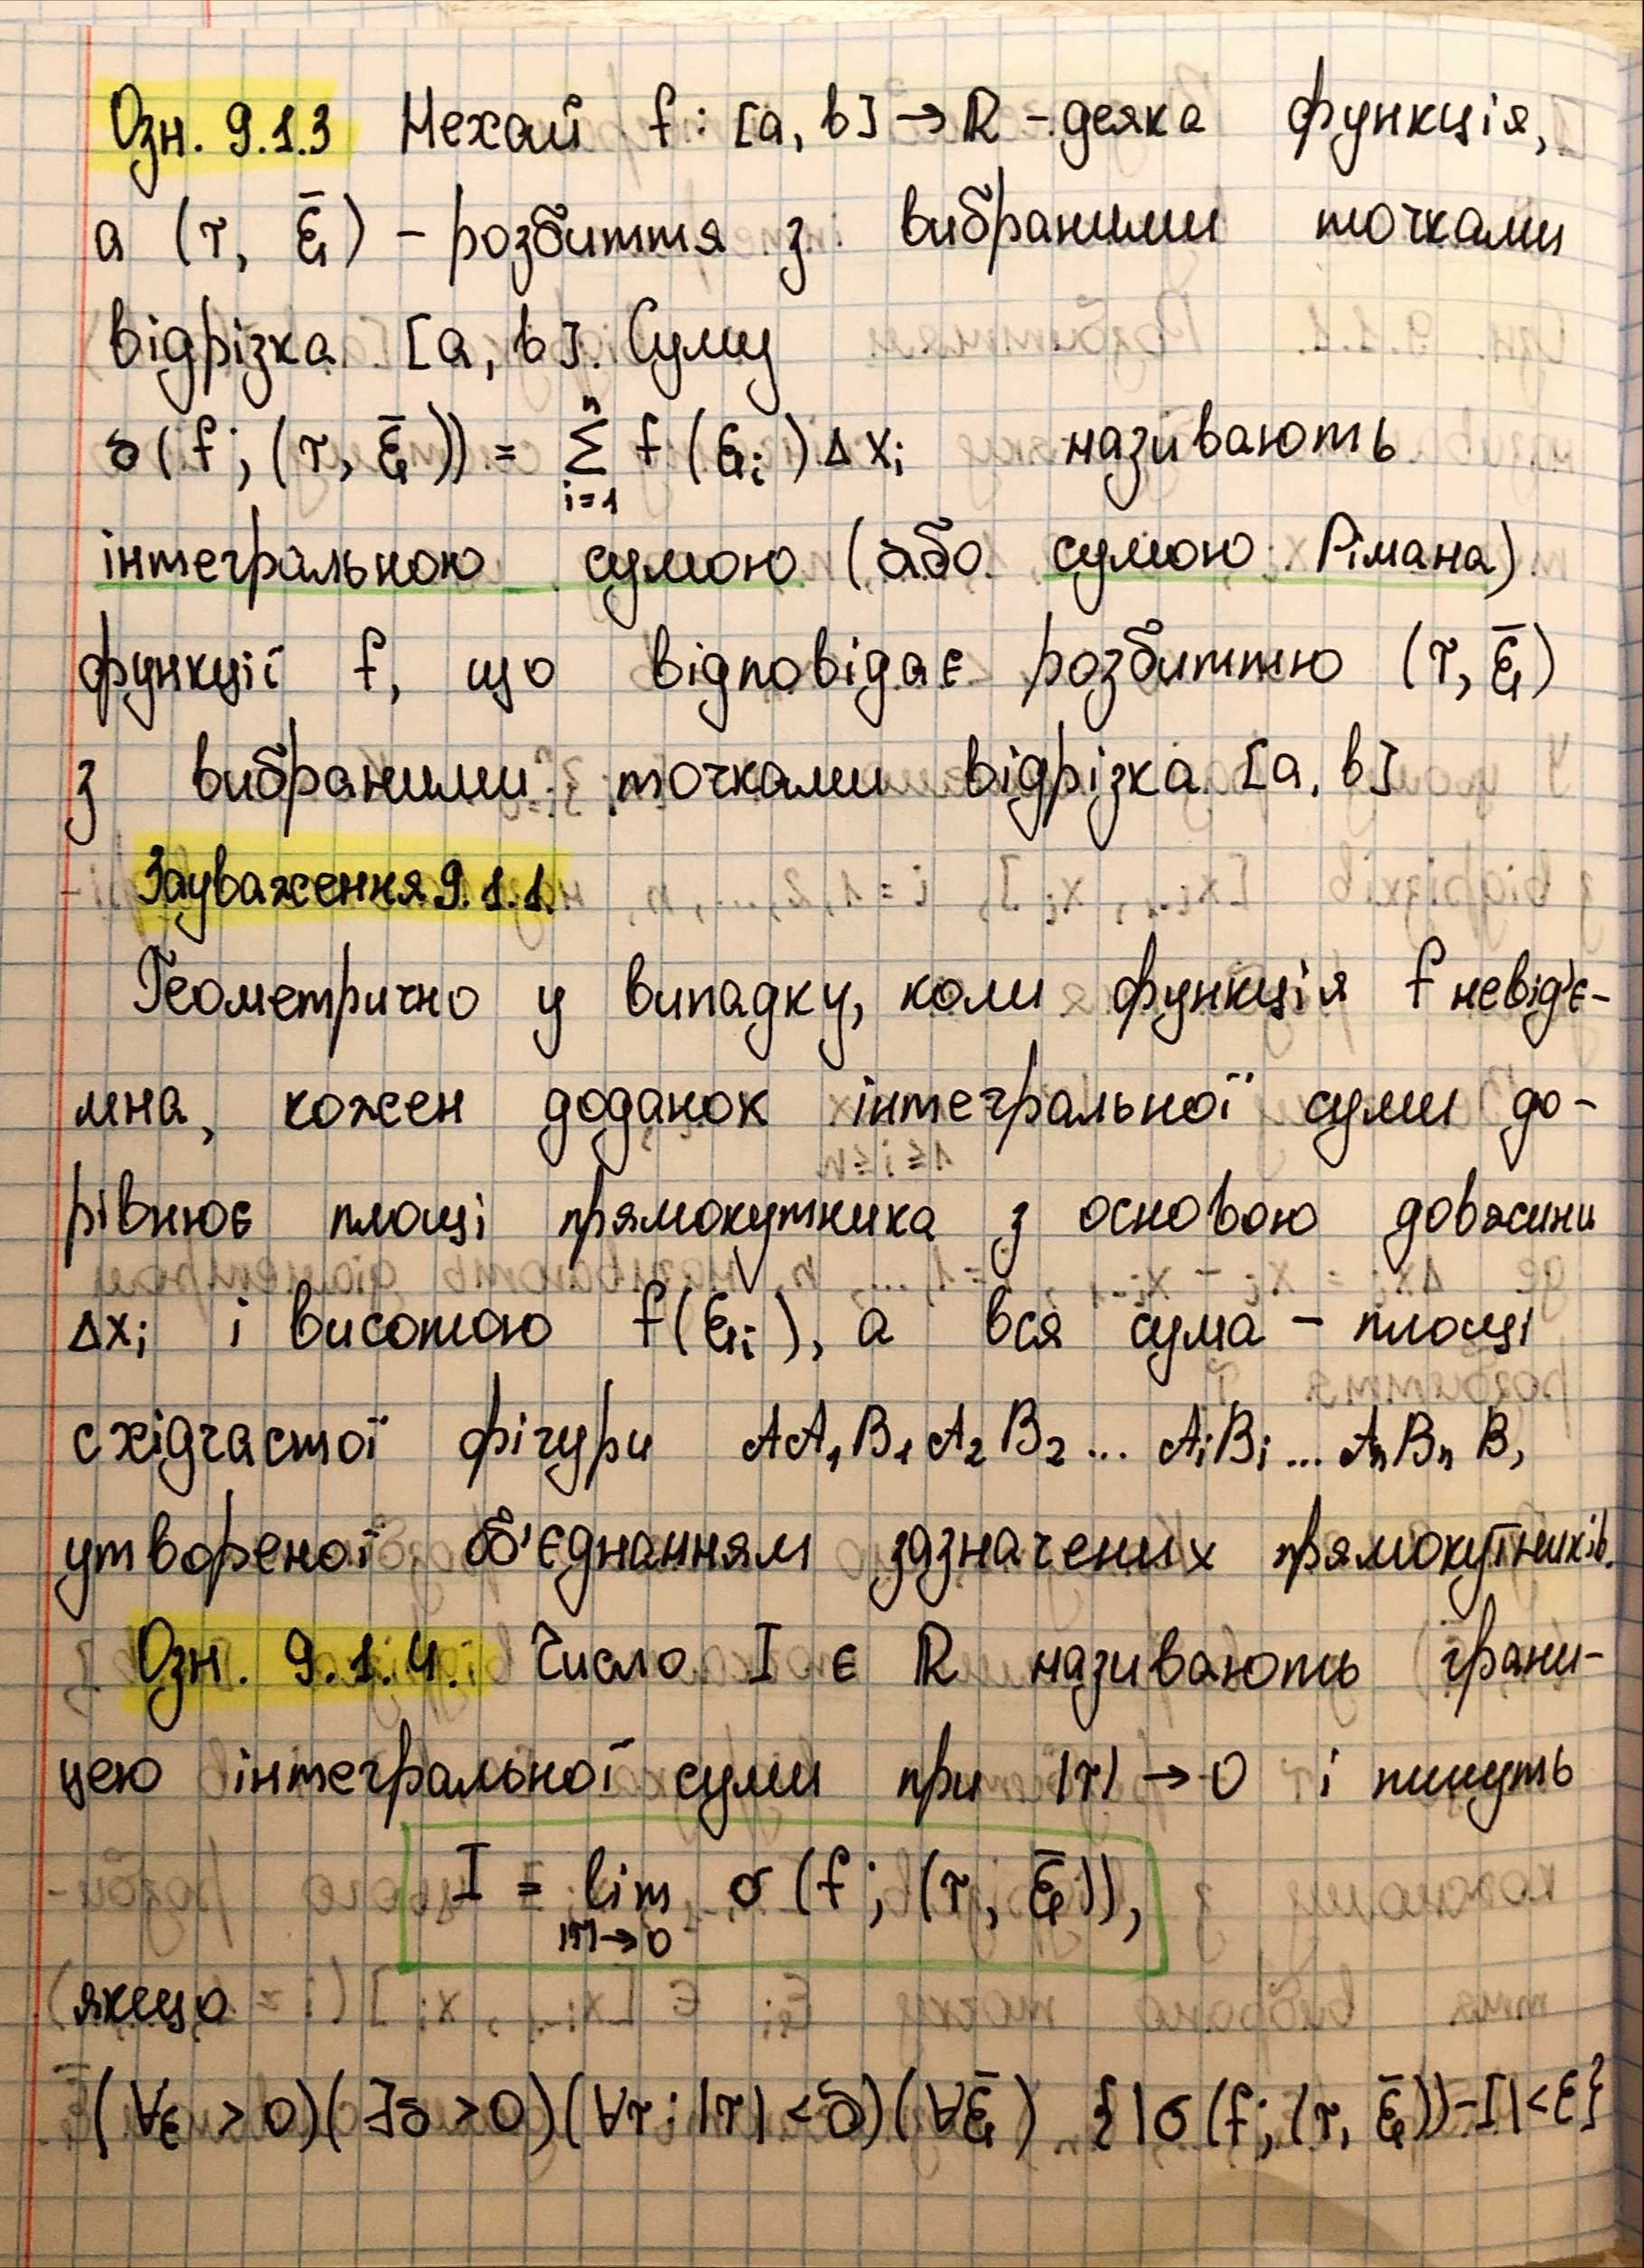 Озн. 9.1.3 Нехай f: [a, b] → ℝ - деяка функція,
а (τ, ξ̄) - розбиття з вибраними точками
відрізка [a, b]. Суму
σ(f; (τ, ξ̄)) = ∑ⁿᵢ₌₁ f(ξᵢ)Δxᵢ називають
інтегральною сумою (або сумою Рімана)
функції f, що відповідає розбиттю (τ, ξ̄)
з вибраними точками відрізка [a, b]
Зауваження 9.1.1.
Геометрично у випадку, коли функція f невід'є-
мна, кожен доданок інтегральної суми до-
рівнює площі прямокутника з основою довжини
Δxᵢ і висотою f(ξᵢ), а вся сума - площі
східчастої фігури AA₁B₁A₂B₂... AᵢBᵢ... AₙBₙB,
утвореної об'єднанням здзначених прямокутників.
Озн. 9.1.4. Число I ∈ ℝ називають грани-
цею інтегральної суми при |τ| → 0 і пишуть
I = lim|τ|→0 σ(f; (τ, ξ̄)),
якщо
(∀ε > 0)(∃δ > 0)(∀τ: |τ| < δ)(∀ξ̄) {|σ(f; (τ, ξ̄)) - I| < ε}